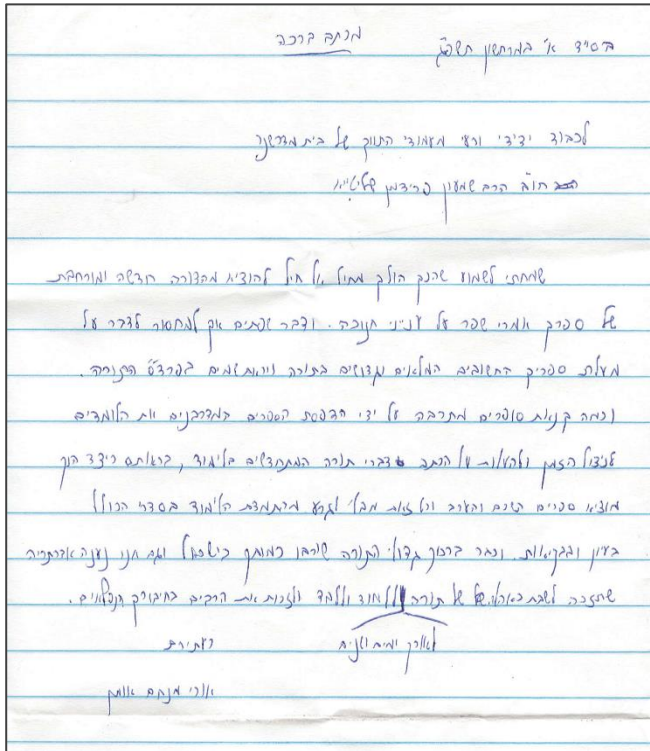 מכתב ברכה
בס״ד א׳ במרחשון תשפ״ג
לכבוד ידידי ורעי מעמודי התווך של בית מדרשנו
הרב שמעון פרידמן שליט״א
שמחתי לשמוע שהנך הולך מחיל אל חיל להוציא מהדורה חדשה ומורחבת
של ספרך אמרי שפר על עניני חנוכה. ודבר שפתים אך למחסור לדבר על
מעלת ספריך החשובים המלאים וגדושים בתורה ויראת שמים בפרד״ס התורה.
וכמה קנאת סופרים מתרבה על ידי הדפסת הספרים במדרבנים את הלומדים
לניצול הזמן ולהעלות על הכתב דברי תורה המתחדשים בלימוד, בראותם כיצד הנך
מוציא ספרים השכם והערב וכל זאת מבלי לגרוע מהתמדת הלימוד בסדרי הכולל
בעיון ובבקיאות. וכבר ברכוך גדולי התורה שירבו כמותך בישראל וגם אנו נענה אבתריה
שתזכה לשבת באהלה של תורה ללמוד וללמד ולזכות את הרבים בחיבוריך הנפלאים.
לאורך ימים ושנים
בעתירת
אורי מנחם